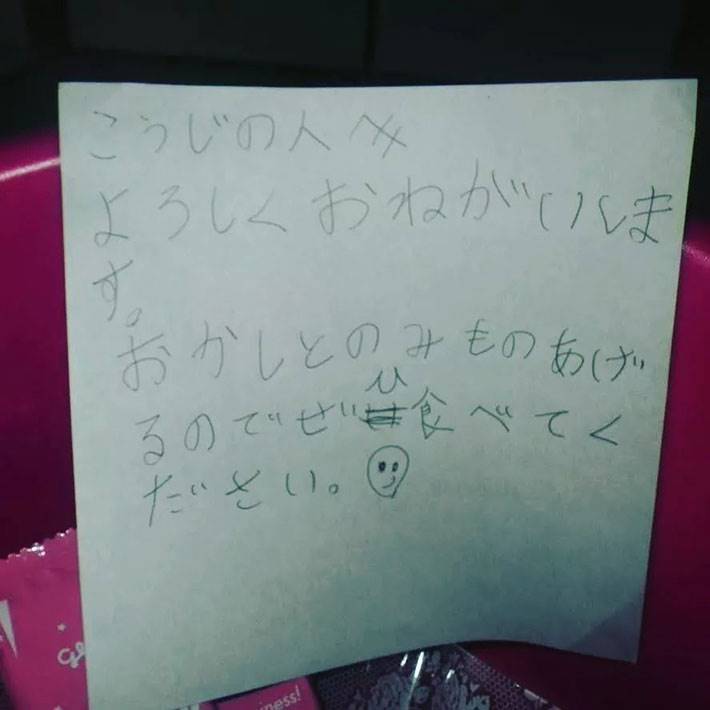 こうじの人へ
よろしくおねがいしま
す。
おかしとのみものあげ
るのでぜひ食べてく
ださい。
iness!